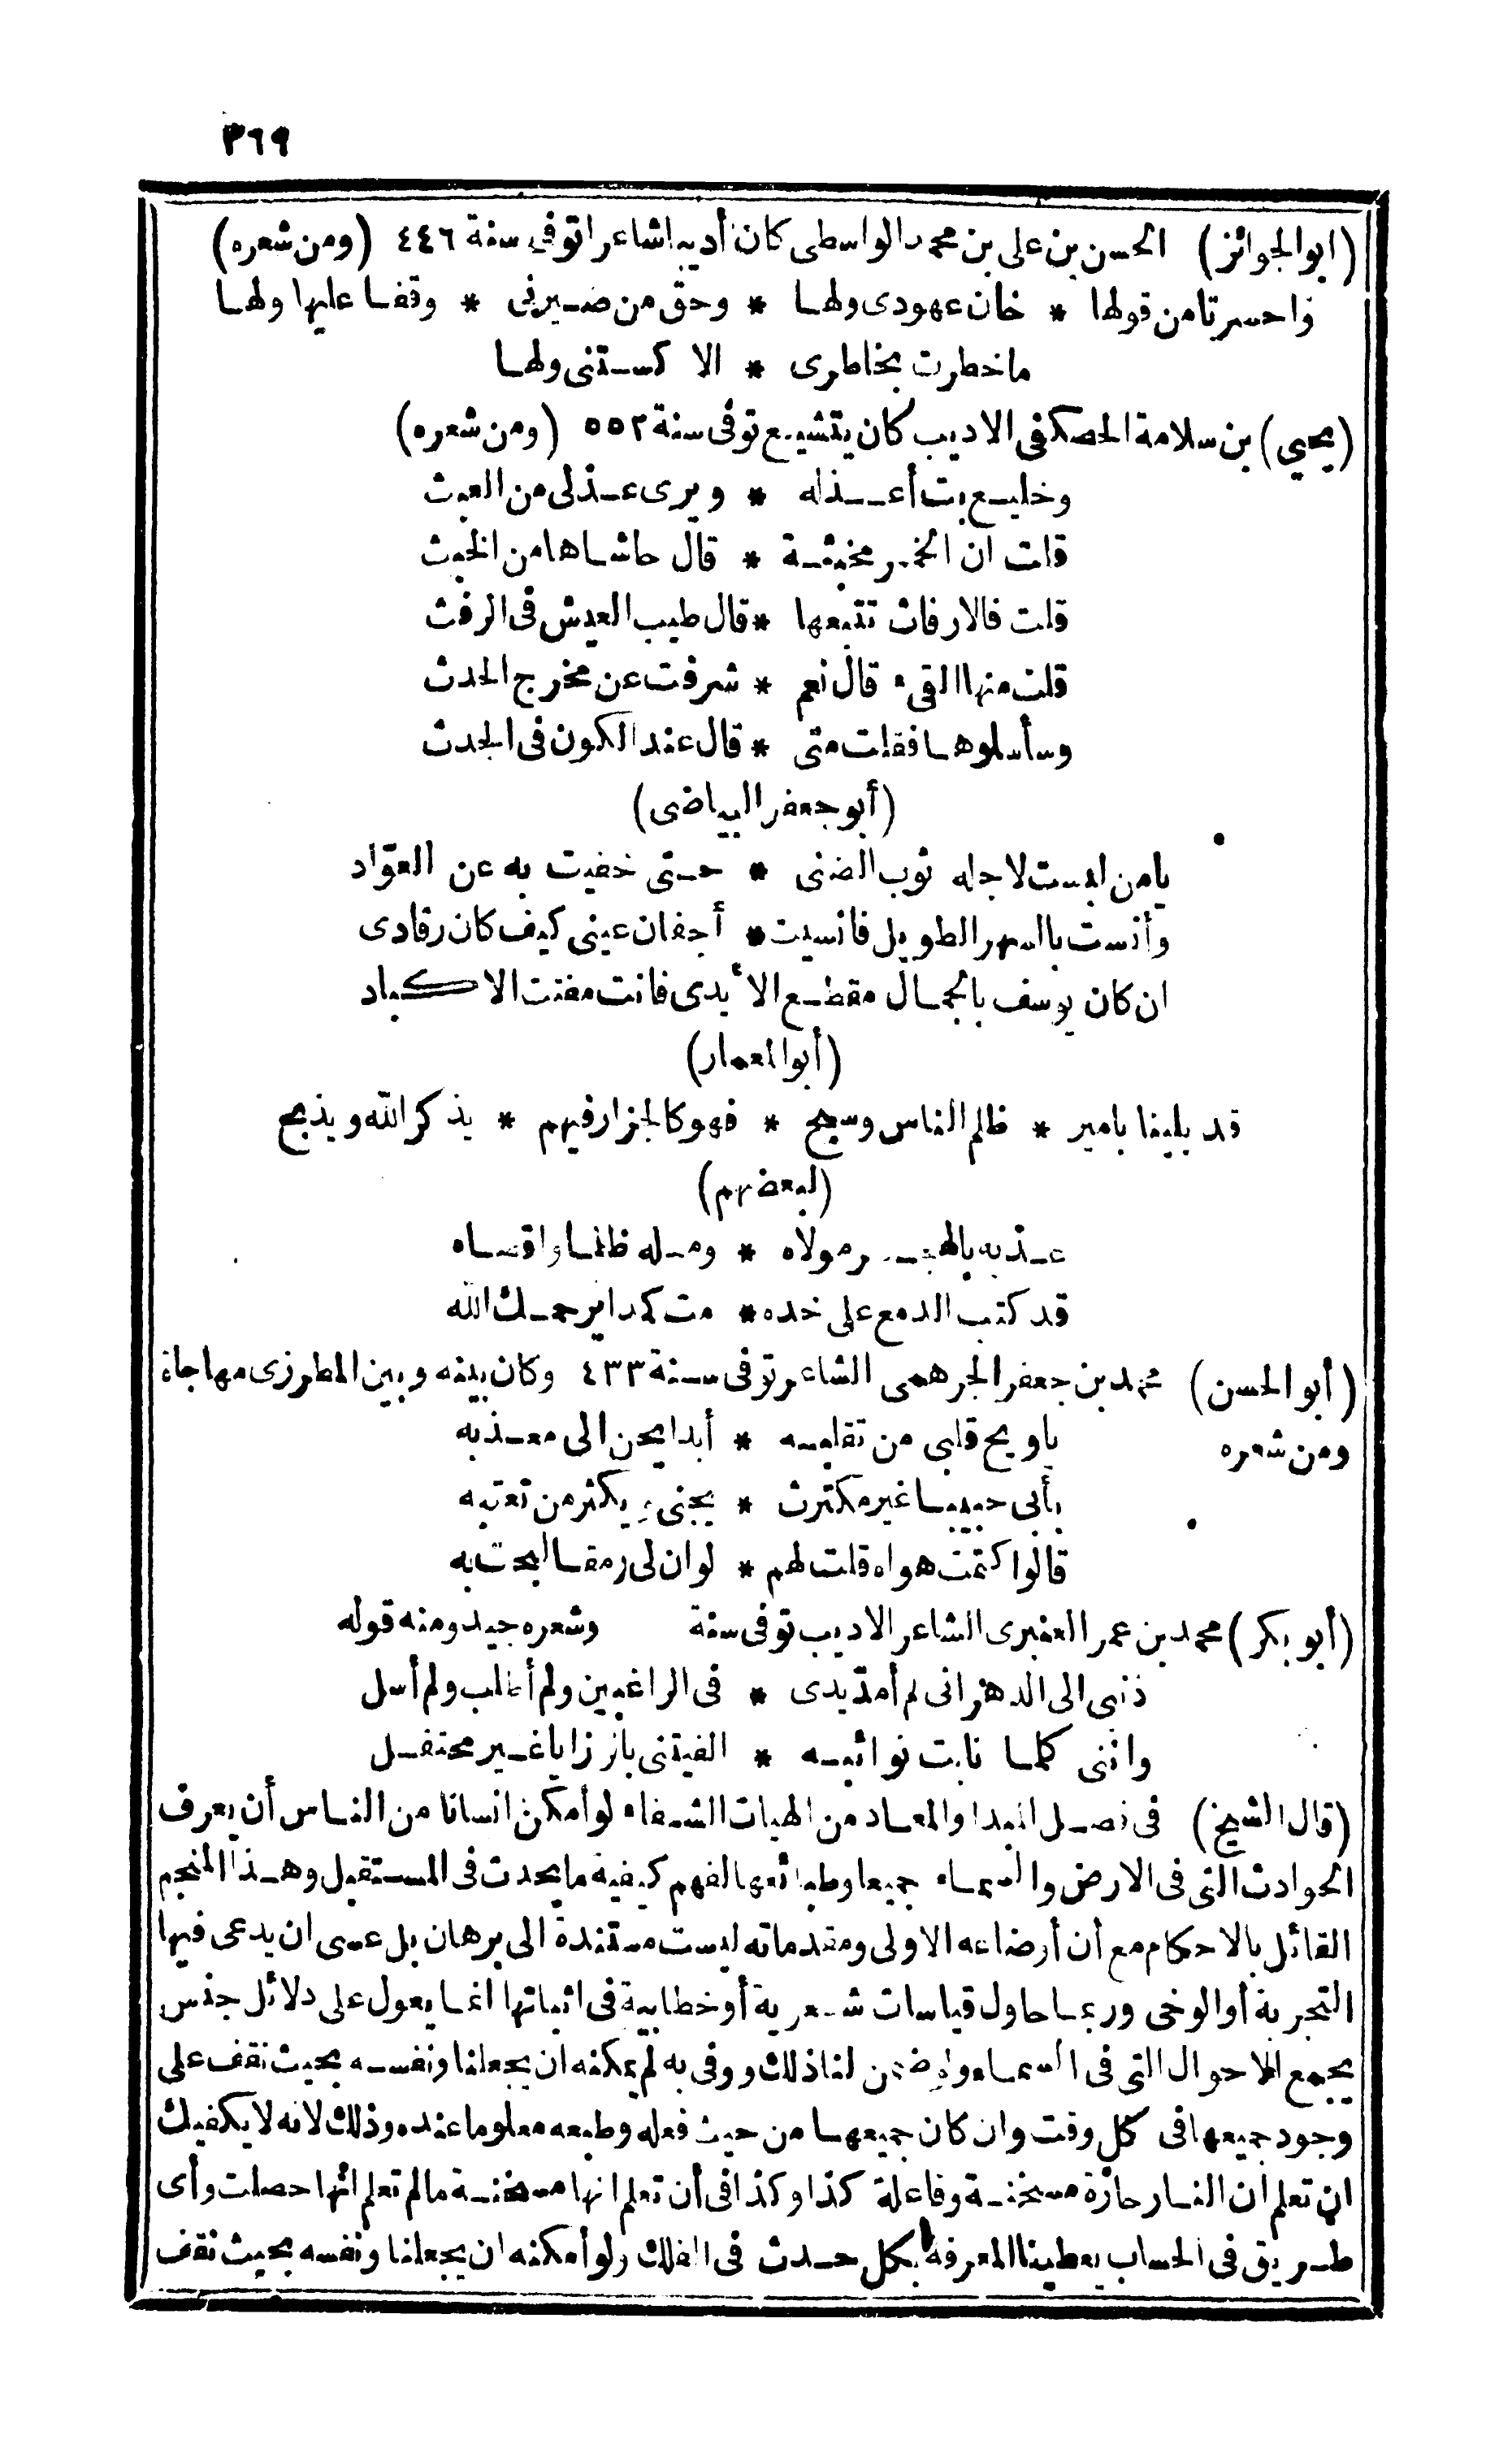 ٣٦٩
(ابوالجوائز) الحسن بن على بن محمد الواسطى كان أديبا شاعرا توفى سنة ٤٤٦ (ومن شعره)
واحسرتا من قولها * خان عهودى ولهـا * وحق من صـيرنى * وقفـا عليها ولهـا
ما خطرت بخاطرى * الا كسـتنى ولهـا
(يحيى) بن سلامة الحصكفى الاديب كان يتشيـع توفى سنة ٥٥٢ (ومن شعره)
وخليـع بت أعـذله * ويرى عـذلى من العبث
قلت ان الخمر مخبثـة * قال حاشـاها من الخبث
قلت فالارفاث تتبعها * قال طيب العيش فى الرفث
قلت منها القىء قال نعم * شرفت عن مخرج الحدث
وسأسلوهـا فقلت متى * قال عند الكون فى الجدث
(أبو جعفر البياضى)
يا من لبست لاجله ثوب الضنى * حـتى خفيت به عن العوّاد
وأنست بالسهر الطويل فانسيت * أجفان عينى كيف كان رقادى
ان كان يوسف بالجمـال مقطـع الأيدى فانت مفتت الاكباد
(أبو المعمار)
قد بلينا بامير * ظلم الناس وسبح * فهو كالجزار فيهم * يذكر الله ويذبح
(لبعضهم)
عـذبه بالهجـر مولاه * ومـله ظلمـا واقصـاه
قد كتب الدمع على خده * مت كمدا يرحمـك الله
(أبو الحسن) محمد بن جعفر الجرهمى الشاعر توفى سـنة ٤٣٣ وكان بينه وبين المطرزى مهاجاة
ومن شعره يا ويح قلبى من تقلبـه * أبدا يحن الى معـذبه
بأبى حبيبـا غير مكترث * يجنى ويكثر من تعتبه
قالوا كتمت هواه قلت لهم * لو ان لى رمقـا لبحت به
(أبو بكر) محمد بن عمر العنبرى الشاعر الاديب توفى سنة وشعره جيد ومنه قوله
ذنبى الى الدهر انى لم أمدّ يدى * فى الراغبين ولم أطلب ولم أسل
واننى كلمـا نابت نوائبـه * الفيتنى بالرزايا غـير محتفـل
(قال الشيخ) فى فصـل المبدا والمعـاد من الهيات الشـفاء لو أمكن انسانا من النـاس أن يعرف
الحوادث التى فى الارض والسمـاء جميعا وطبائعها لفهم كيفية ما يحدث فى المسـتقبل وهـذا المنجم
القائل بالاحكام مع أن أوضاعه الاولى ومقدماته ليست مستندة الى برهان بل عسى ان يدعى فيها
التجربة أو الوحى وربمـا حاول قياسات شـعرية أو خطابية فى اثباتها انمـا يعول على دلائل جنس
يجمع الاحوال التى فى السمـاء ولو ضمن لنا ذلك ووفى به لم يمكنه ان يجعلنا ونفسـه بحيث نقف على
وجود جميعها فى كل وقت وان كان جميعهـا من حيث فعله وطبعه معلوما عنده وذلك لانه لا يكفيك
ان تعلم ان النـار حارّة مسخنـة وفاعلة كذا وكذا فى أن تعلم انها مسخنـة ما لم تعلم انها حصلت وأى
طـريق فى الحساب يعطينا المعرفة بكل حـدث فى الفلك ولو أمكنه ان يجعلنا ونفسه بحيث نقف